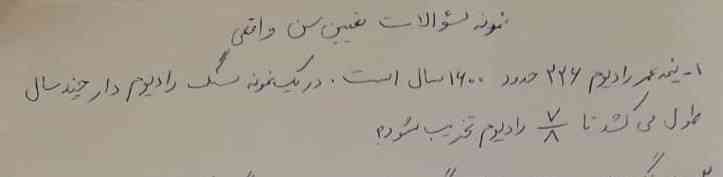 نمونه سؤالات تعیین سن واقعی
۱- نیمه عمر رادیوم ۲۲۶ حدود ۱۶۰۰ سال است. در یک نمونه سنگ رادیوم دار چند سال
طول می کشد تا ۷/۸ رادیوم تخریب شود؟